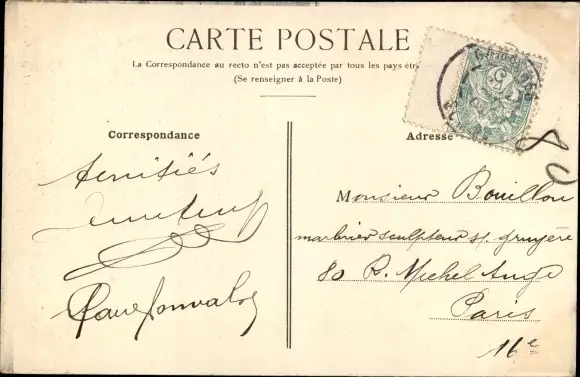 CARTE POSTALE
La Correspondance au recto n'est pas acceptée par tous les pays étra
(Se renseigner à la Poste)
Correspondance
Adresse
amitiés
Monsieur Bouillon
marbrier sculpteur st. gruyère
80 R. Michel Ange
Paris
16e